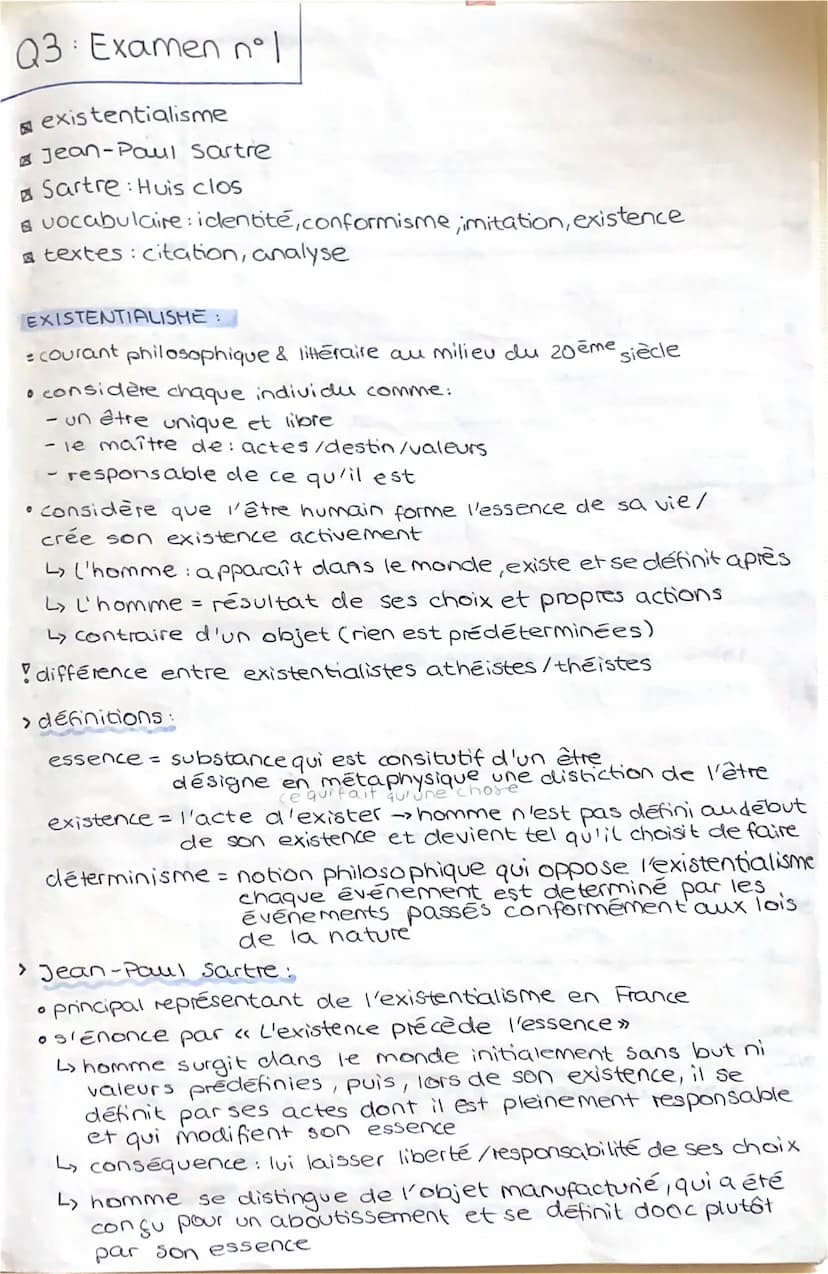 Q3 : Examen n°1
existentialisme
Jean-Paul Sartre
Sartre : Huis clos
vocabulaire : identité, conformisme, imitation, existence
textes : citation, analyse
EXISTENTIALISME :
= courant philosophique & littéraire au milieu du 20ème siècle
• considère chaque individu comme :
- un être unique et libre
- le maître de : actes /destin /valeurs
- responsable de ce qu'il est
• considère que l'être humain forme l'essence de sa vie/
crée son existence activement
↳ L'homme : apparaît dans le monde, existe et se définit après
↳ L'homme = résultat de ses choix et propres actions
↳ contraire d'un objet (rien est prédéterminées)
! différence entre existentialistes athéistes /théistes
> définitions :
essence = substance qui est consitutif d'un être
désigne en métaphysique une distiction de l'être
ce qui fait qu'une chose
existence = l'acte d'exister → homme n'est pas défini au début
de son existence et devient tel qu'il choisit de faire
déterminisme = notion philosophique qui oppose l'existentialisme
chaque événement est determiné par les
événements passés conformément aux lois
de la nature
> Jean-Paul Sartre :
• principal représentant de l'existentialisme en France
• s'énonce par « L'existence précède l'essence »
↳ homme surgit dans le monde initialement sans but ni
valeurs prédéfinies, puis, lors de son existence, il se
définit par ses actes dont il est pleinement responsable
et qui modifient son essence
↳ conséquence : lui laisser liberté /responsabilité de ses choix
↳ homme se distingue de l'objet manufacturié, qui a été
conçu pour un aboutissement et se définit donc plutôt
par son essence